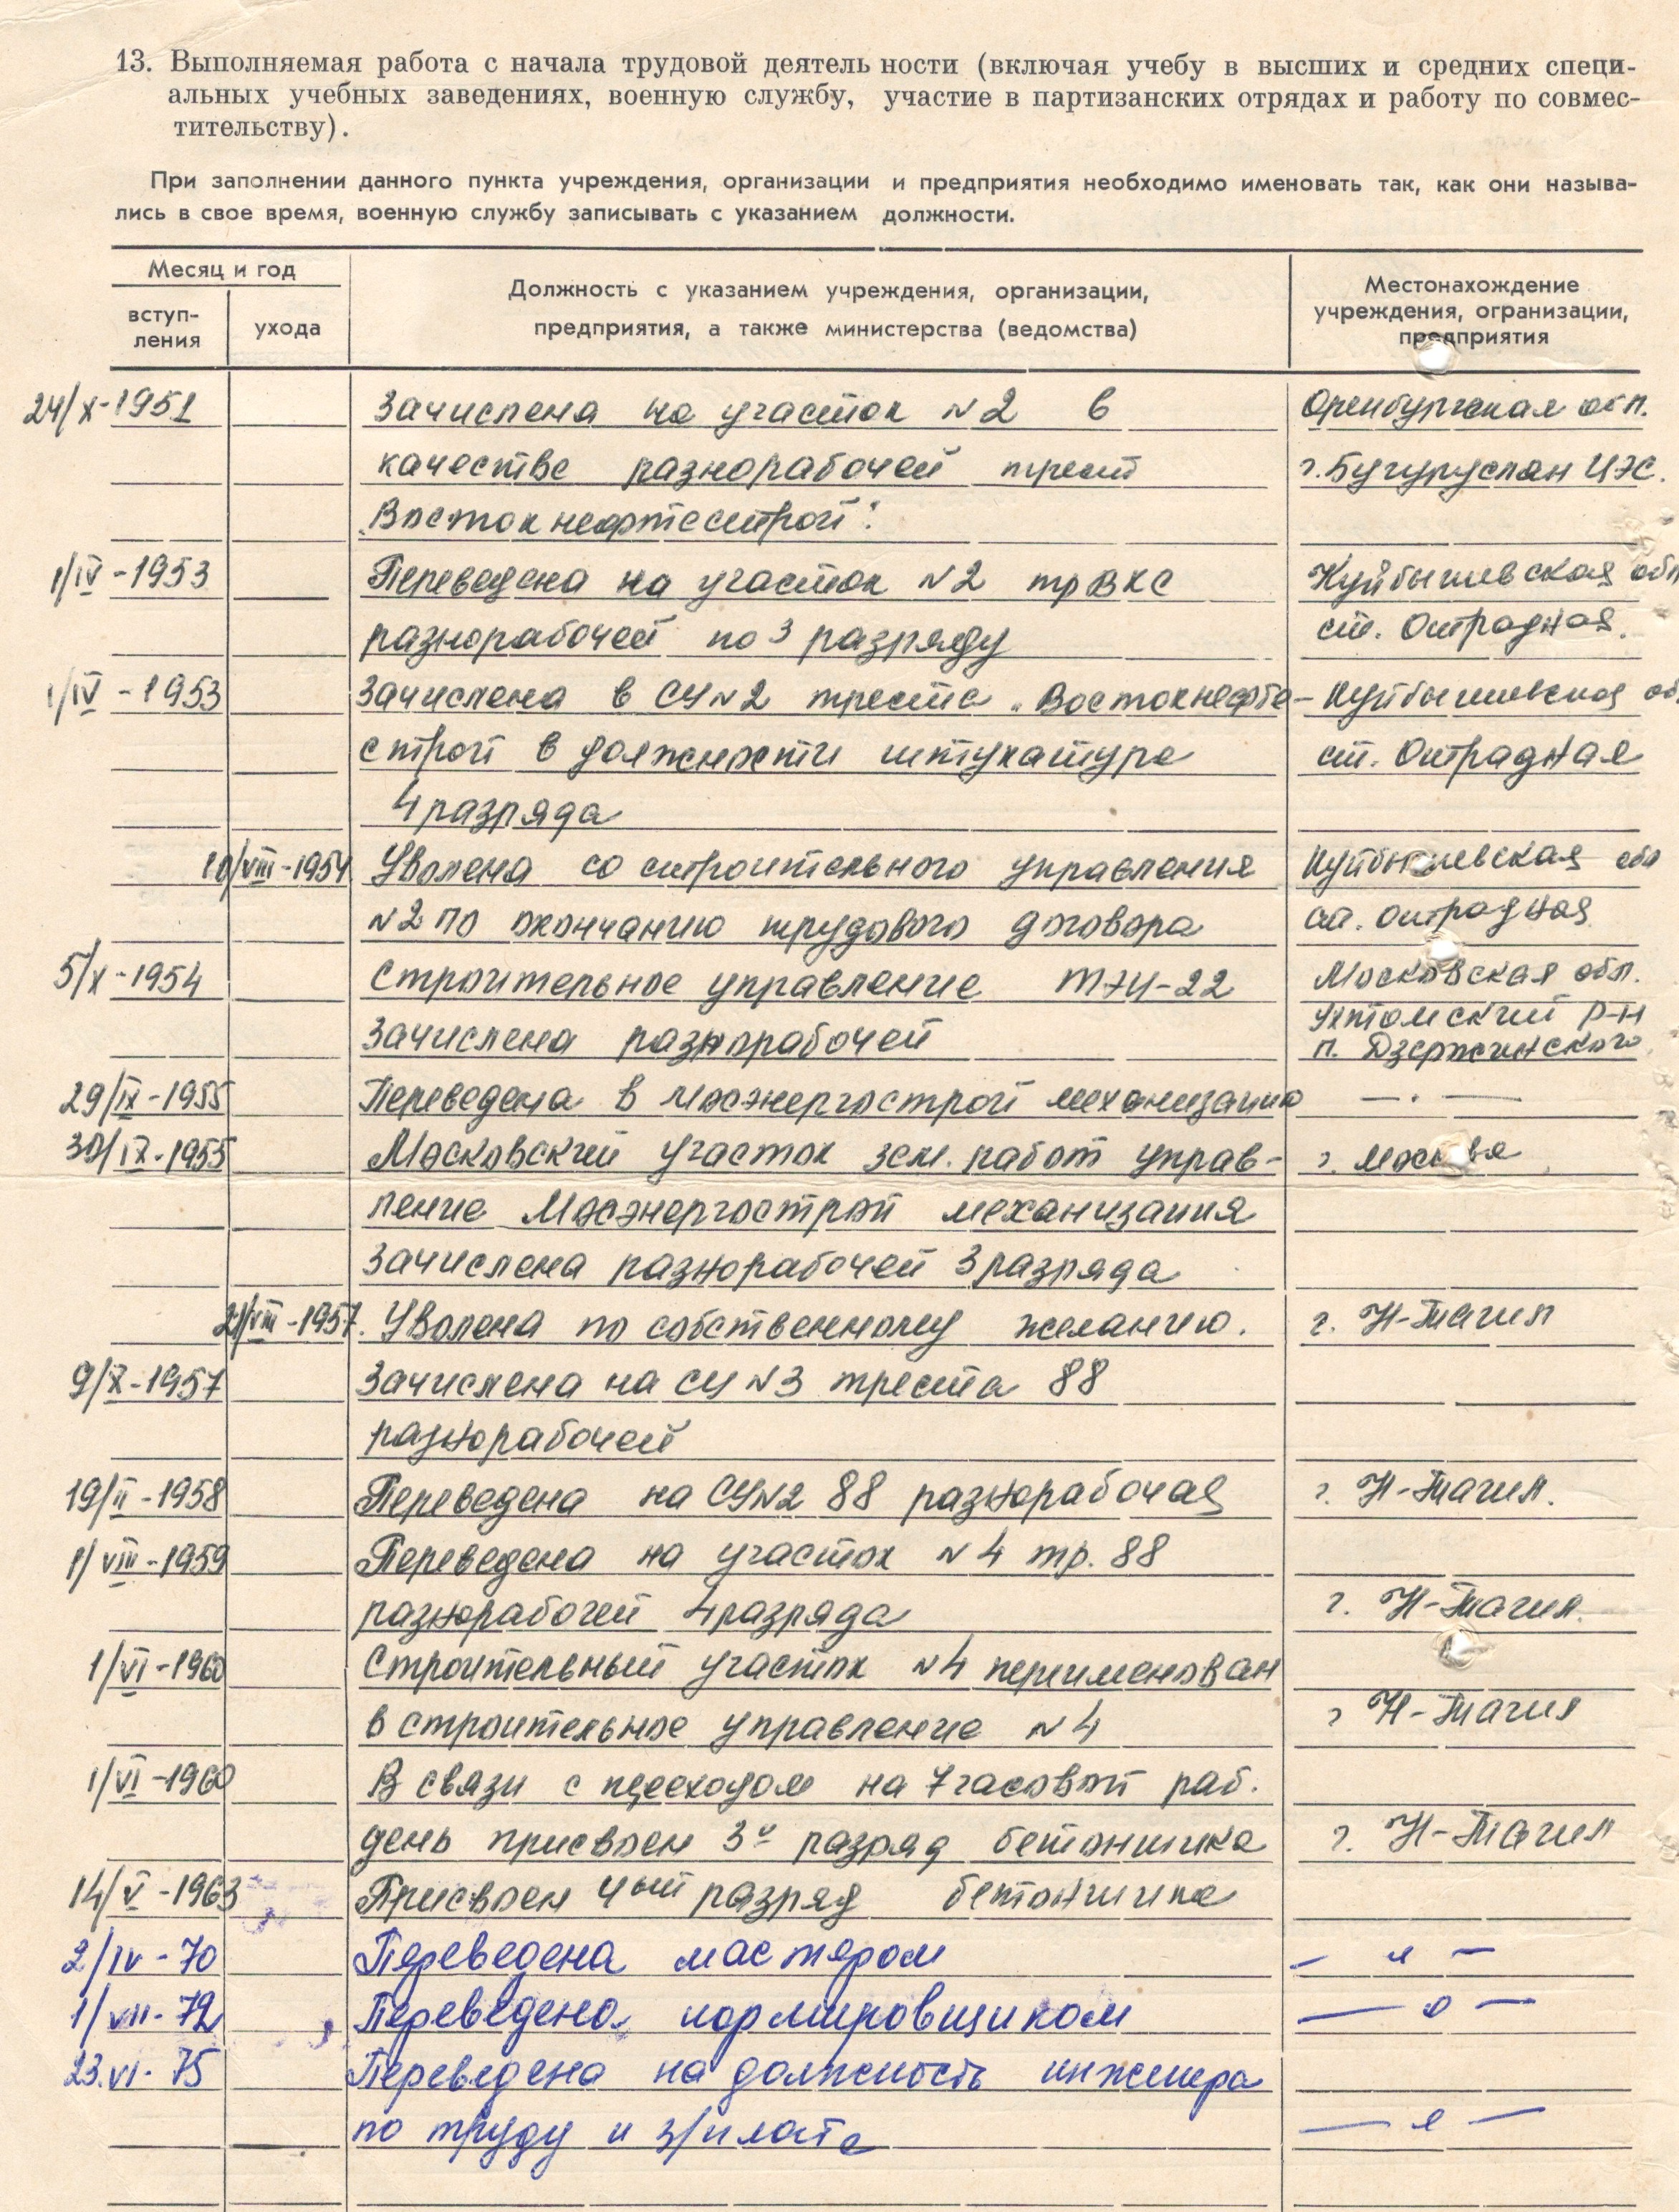 13. Выполняемая работа с начала трудовой деятель ности (включая учебу в высших и средних специ-
альных учебных заведениях, военную службу, участие в партизанских отрядах и работу по совмес-
тительству).
При заполнении данного пункта учреждения, организации и предприятия необходимо именовать так, как они называ-
лись в свое время, военную службу записывать с указанием должности.
Месяц и год
вступ-
ления
ухода
Должность с указанием учреждения, организации,
предприятия, а также министерства (ведомства)
Местонахождение
учреждения, огранизации,
предприятия
24/X-1951 Зачислена на участок №2 в Оренбургская обл.
качестве разнорабочей трест г.Бугуруслан ЦЭС.
"Востокнефтестрой".
1/IV-1953 Переведена на участок №2 тр ВКС Куйбышевская обл
разнорабочей по 3 разряду ст. Отрадная.
1/IV-1953 Зачислена в СУ№2 треста "Востокнефте- Куйбышевская об
строй в должности штукатура ст. Отрадная
4 разряда
10/VIII-1954 Уволена со строительного управления Куйбышевская обл
№2 по окончанию трудового договора ст. Отрадная
5/X-1954 Строительное управление ТЭЦ-22 Московская обл.
Зачислена разнорабочей Ухтомский р-н
п. Дзержинского
29/IX-1955 Переведена в Мосэнергострой механизацию — . —
30/IX-1955 Московский участок зем. работ управ- г. Москва
ление Мосэнергострой механизация
зачислена разнорабочей 3 разряда
21/VIII-1957. Уволена по собственному желанию. г. Н-Тагил
9/X-1957 Зачислена на СУ №3 треста 88
разнорабочей
19/II-1958 Переведена на СУ№2 88 разнорабочая г. Н-Тагил.
1/VIII-1959 Переведена на участок №4 тр. 88
разнорабочей 4 разряда г. Н-Тагил.
1/VI-1960 Строительный участок №4 переименован
в строительное управление №4 г Н-Тагил
1/VI-1960 В связи с переходом на 7 часовой раб.
день присвоен 3й разряд бетонщика г. Н-Тагил
14/V-1963 Присвоен 4ый разряд бетонщика
2/IV-70 Переведена мастером — " —
1/VII-72 Переведена нормировщиком — " —
23.VI-75 Переведена на должность инженера
по труду и з/плате — " —